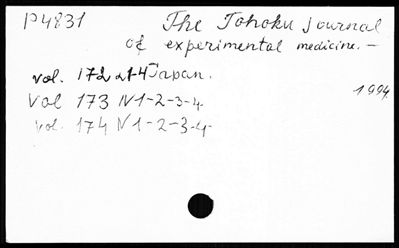 P4831 The Tohoku Journal
of experimental medicine. –
vol. 172 N1-4 Japan.
1994.
Vol 173 N1-2-3-4
vol. 174 N1-2-3-4